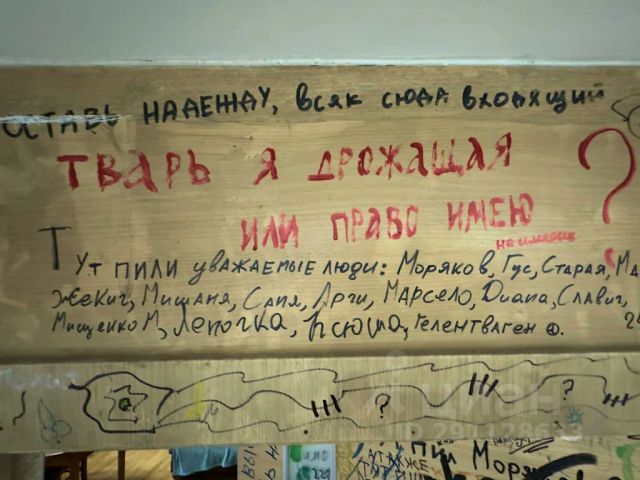 ОСТАВЬ НАДЕЖДУ, всяк сюда входящий
ТВАРЬ Я ДРОЖАЩАЯ
ИЛИ ПРАВО ИМЕЮ ?
не имеешь
Тут пили уважаемые люди: Моряков, Гус, Старая, Ма
Жекич, Мишаня, Саня, Арчи, Марсело, Диана, Славич,
Мищенко М, Леночка, Ксюша, Гелентваген
III ? III ?
циан
ID
пил Моря
А ТАКЖЕ